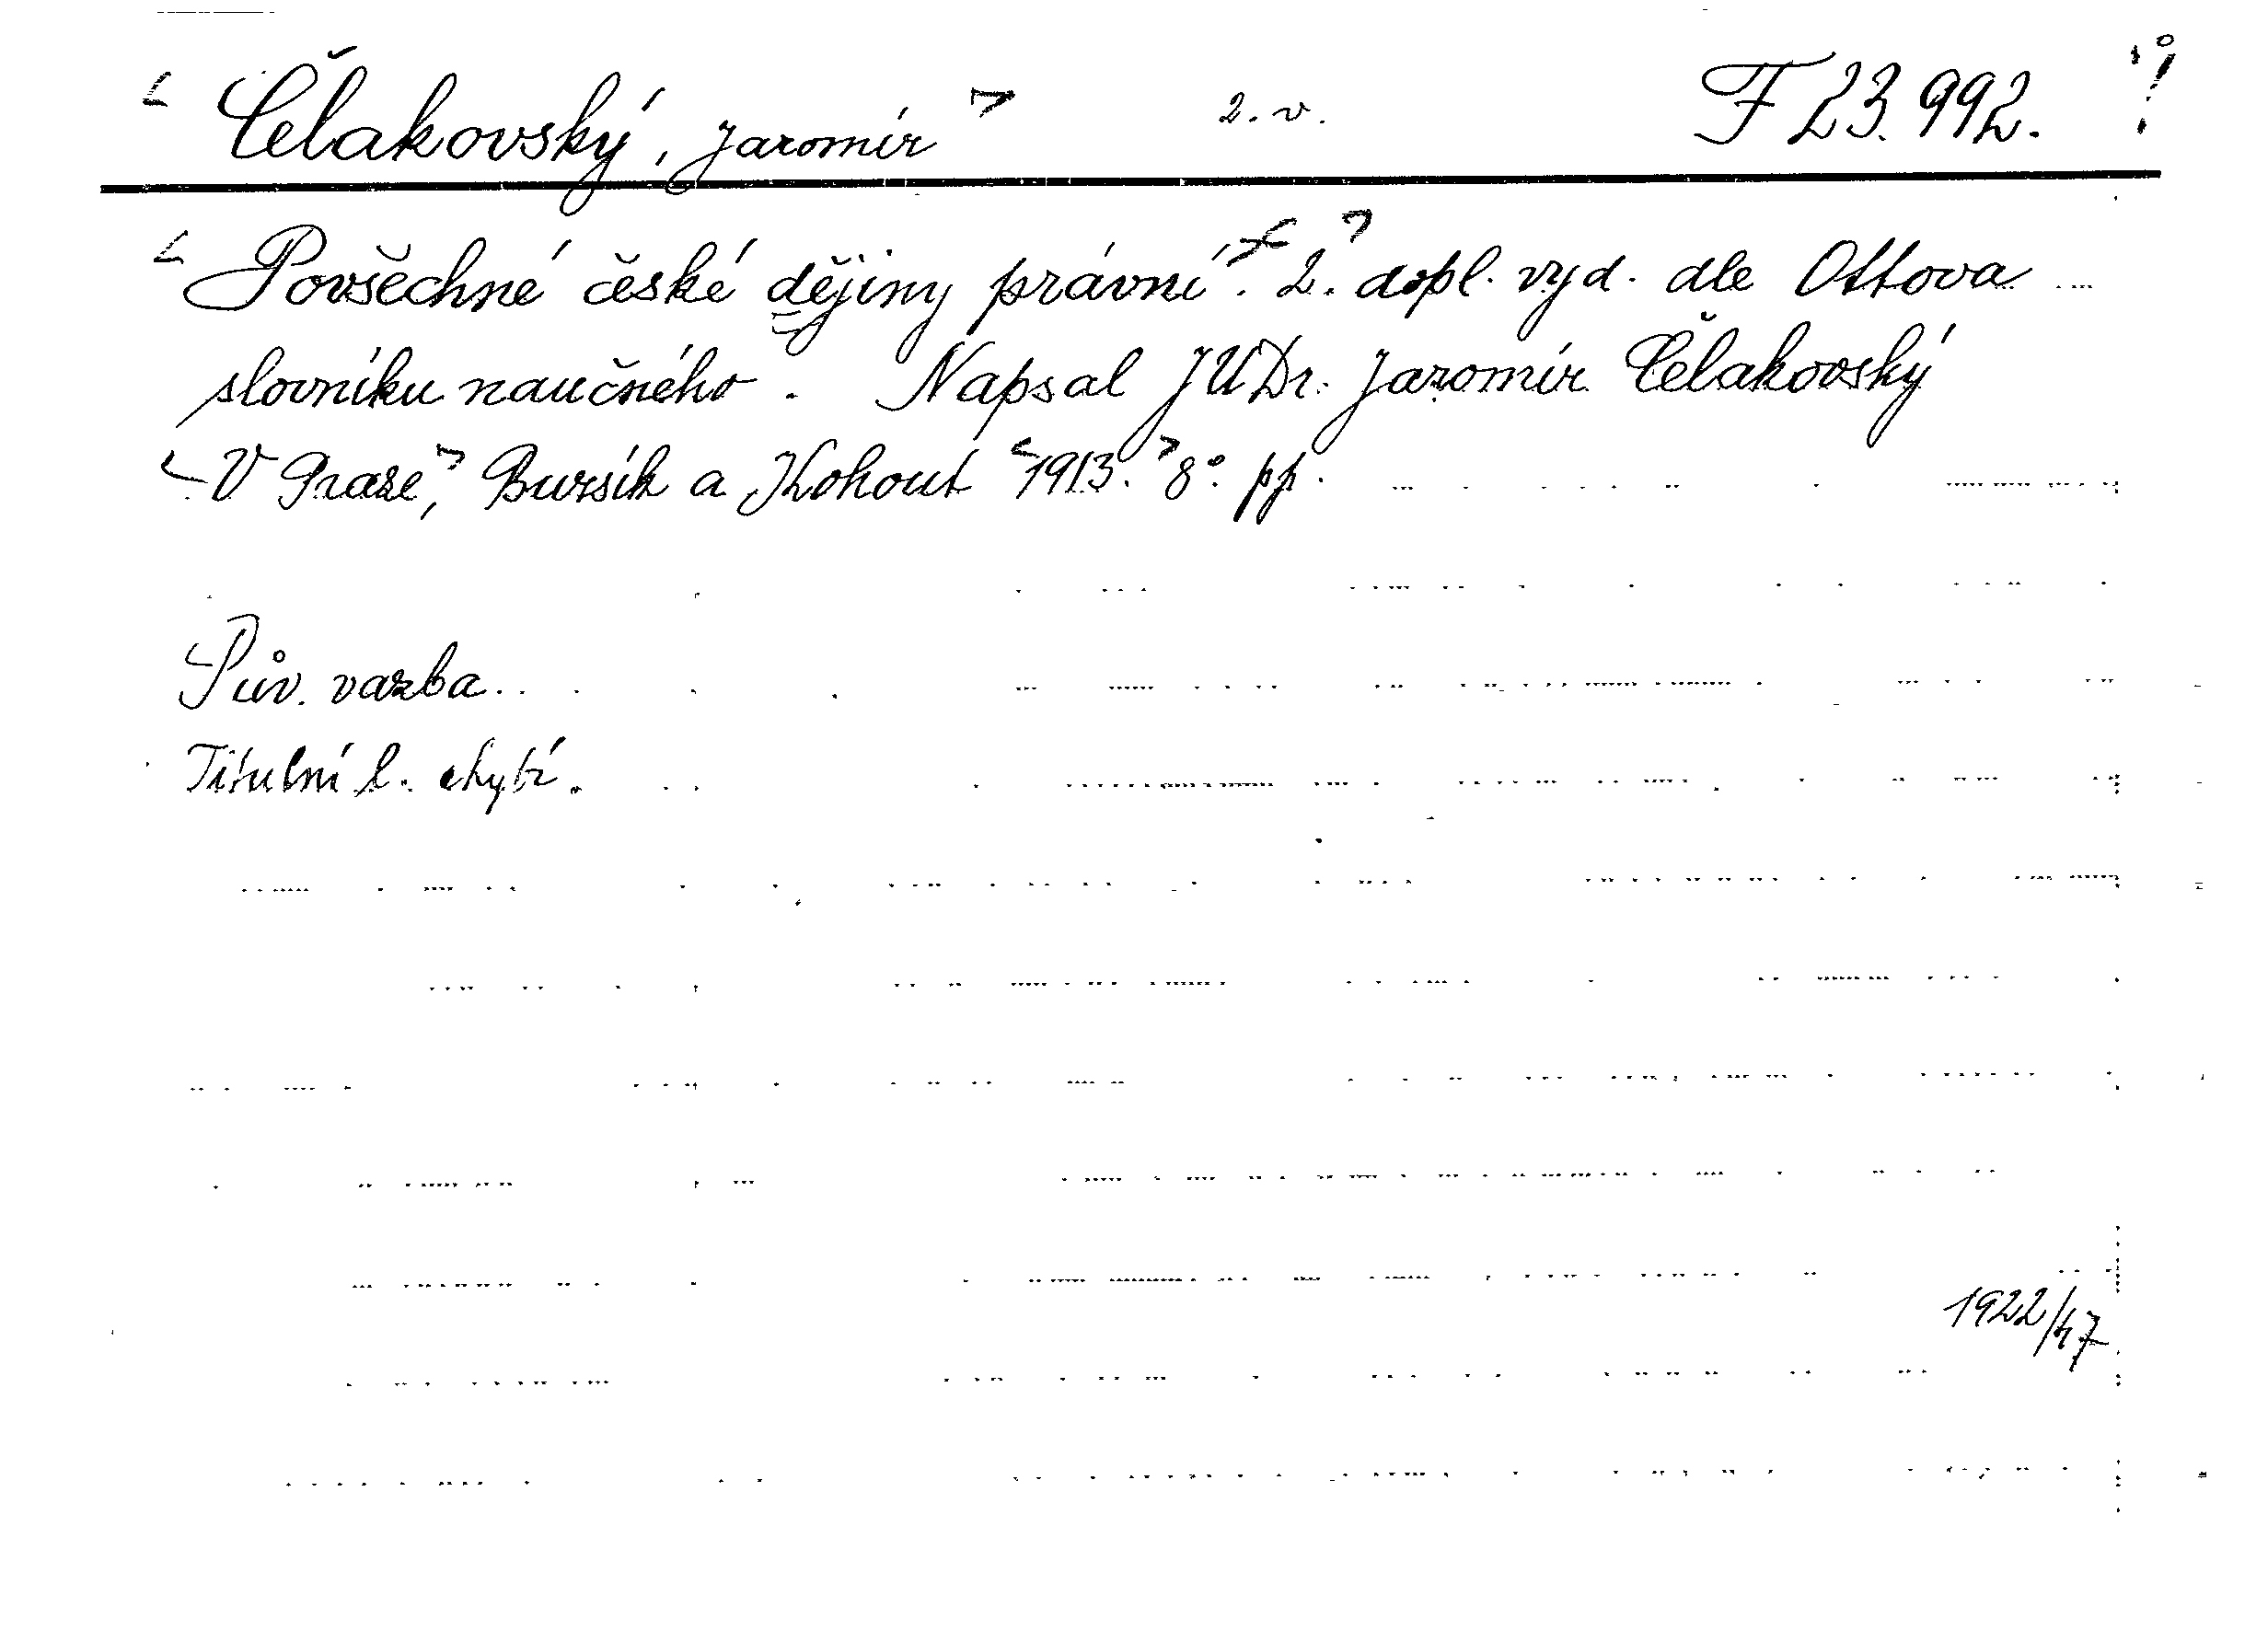 < Čelakovský, Jaromír > 2. v. F 23.992.
< Povšechné české dějiny právní. ≠ 2. > dopl. vyd. dle Ottova
slovníku naučného. Napsal JUDr. Jaromír Čelakovský
< V Praze, > Bursík a Kohout < 1913. > 8°. pp.
Pův. vazba.
Titulní l. chybí.
1922/47